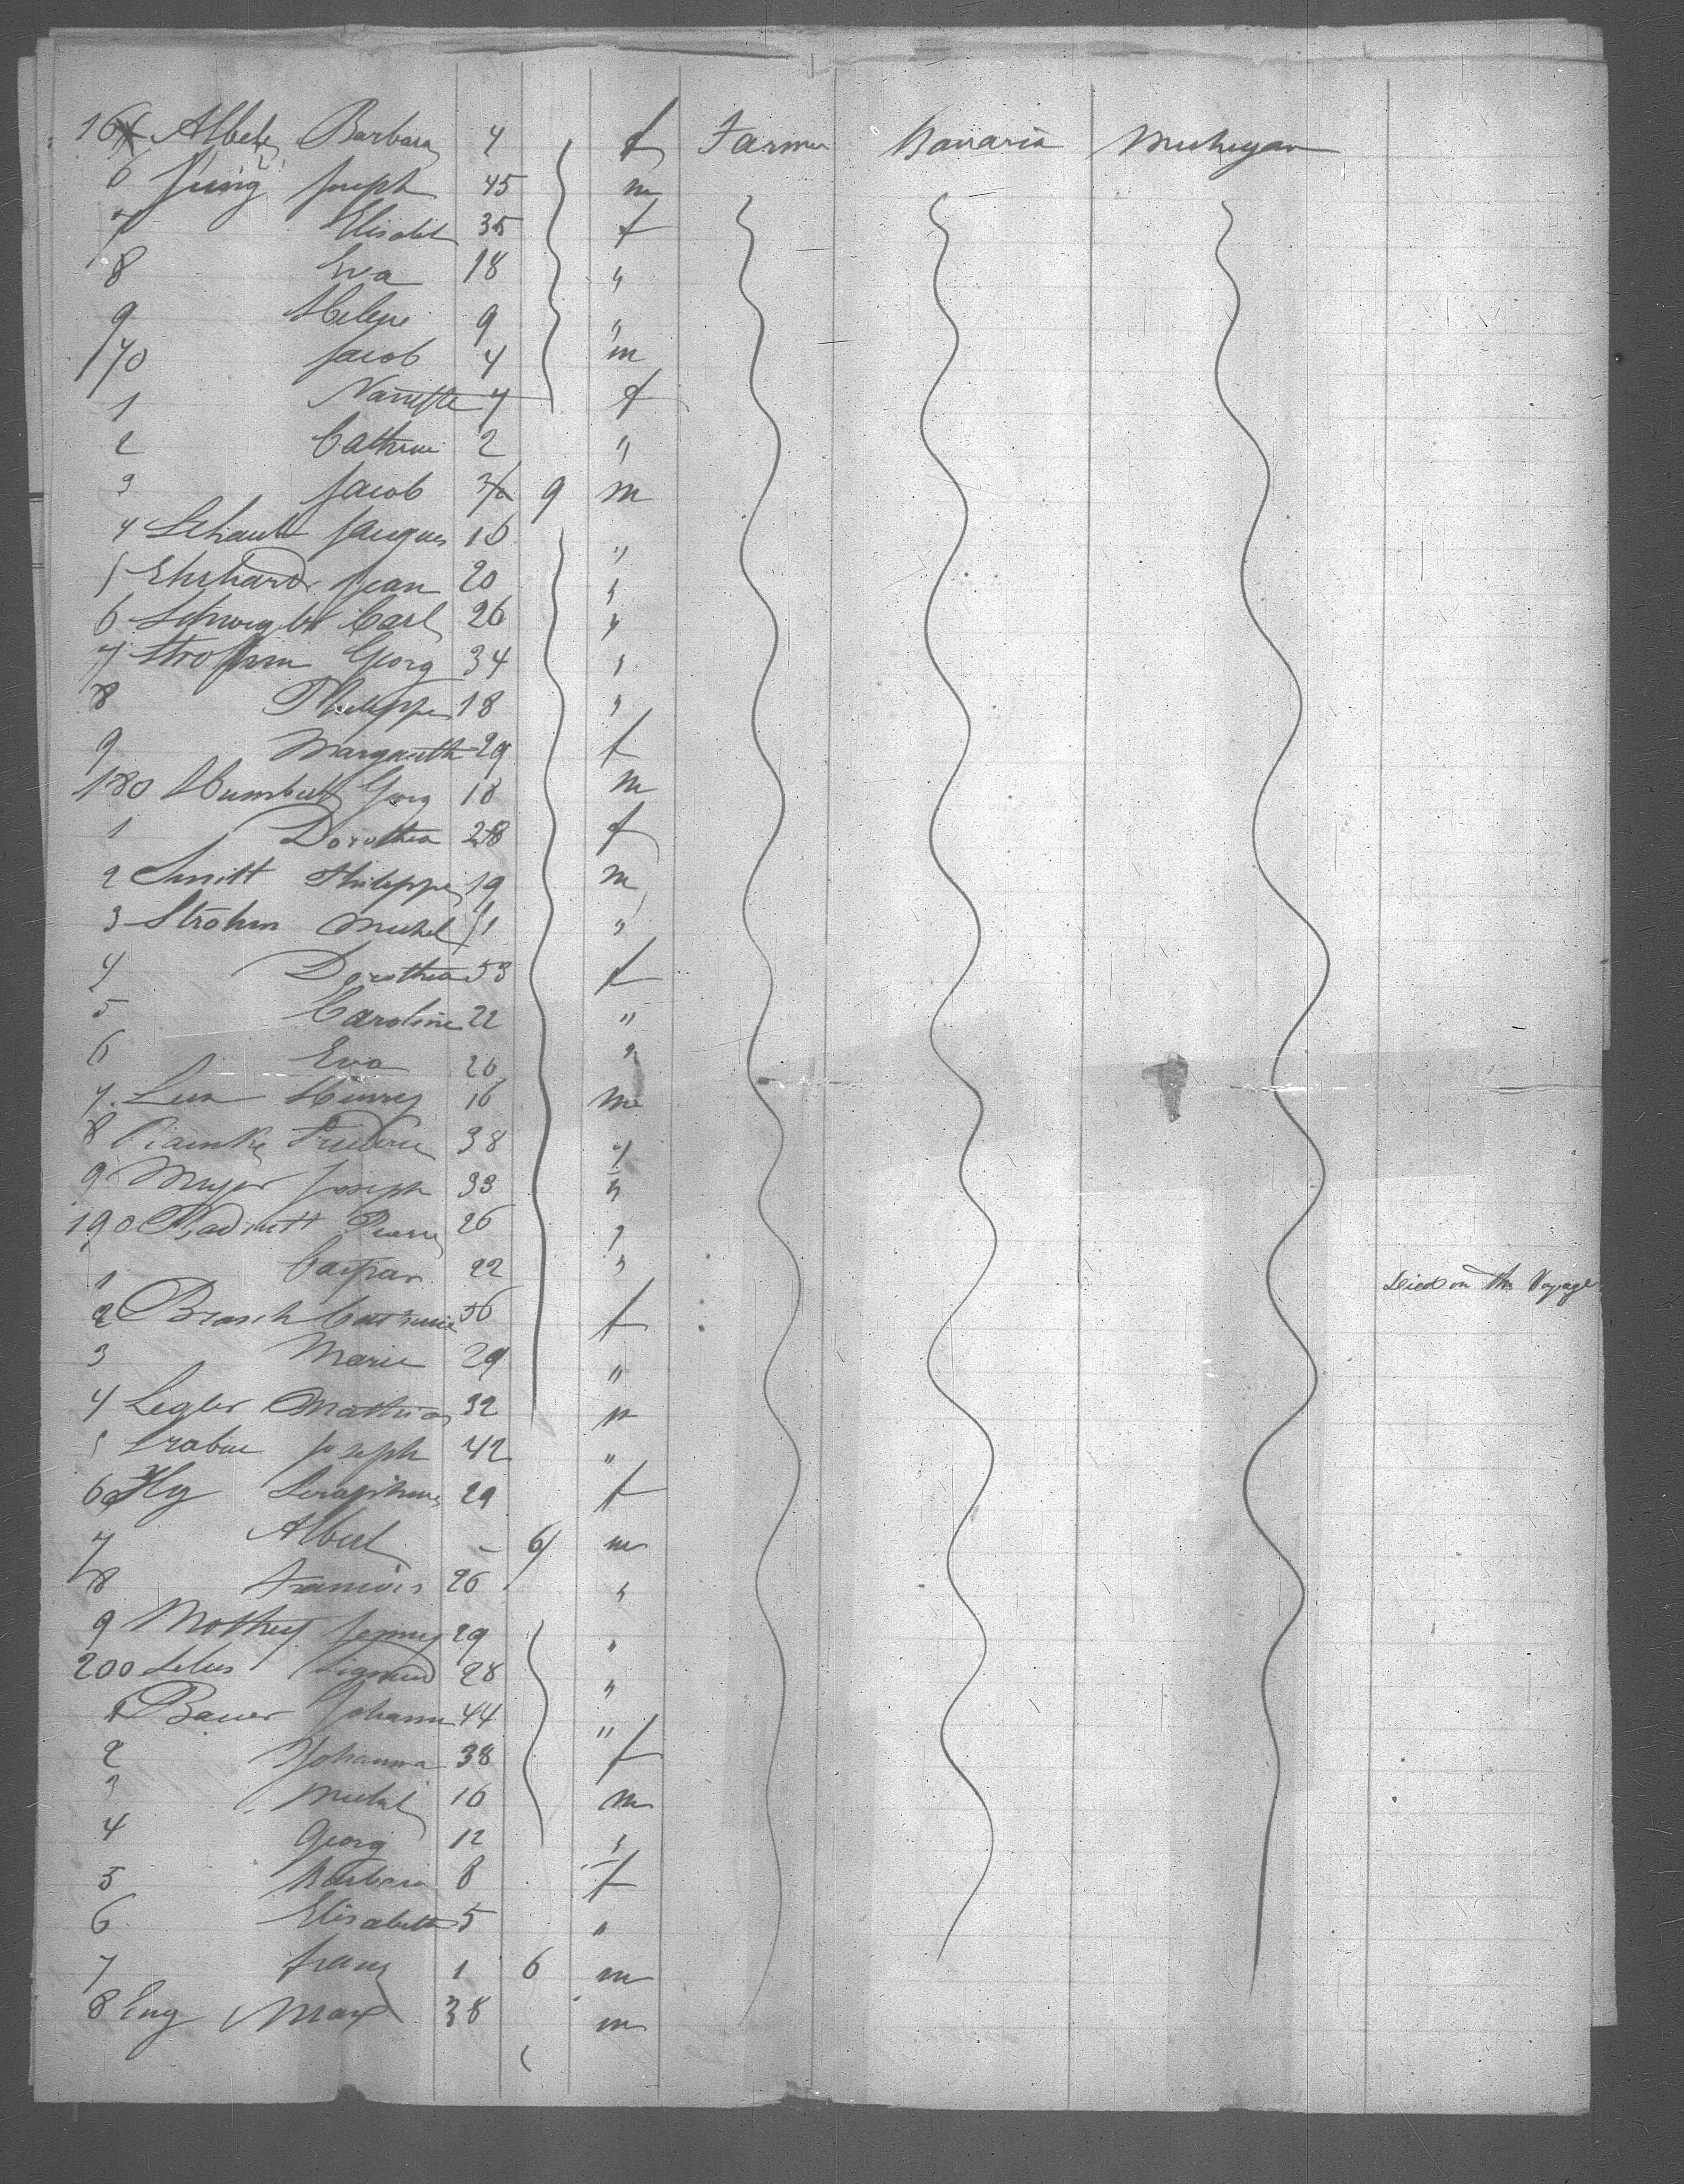 Barbara 4 f Farmer Bavaria Michigan
6 Jung Joseph 45 m
7 Elisabet 35 f
8 Eva 18 "
9 Helene 9 "
170 Jacob 4 m
1 Nanette 4 f
2 Cathrine 2 "
3 Jacob 9 m
4 Jacques 16 "
5 Ehrhard Jean 20 "
6 Carl 26 "
7 Georg 34 "
8 Philippe 18 "
9 Margareth 29 f
180 Humbert Georg 18 m
1 Dorothea f
2 Smitt Philippe 19 m
3 Ströhm Michel 51 "
4 Dorothea 53 f
5 Caroline 22 "
6 Eva 20 "
7 Henry 16 m
8 38 "
9 Meyer Joseph 33 "
190 Pierre 26 "
1 Caspar 22 " Died on the Voyage
2 Brosch Cathrine 56 f
3 Marie 29 "
4 Legler Mathias 32 m
5 Joseph 42 "
6 Seraphine 29 f
7 Albert - 6 m
8 Francois 26 "
9 29 "
200 Sigmund 28 "
1 Bauer Johann 44 "
2 Johanna 38 f
3 Michel 16 m
4 Georg 12 "
5 Barbara 8 f
6 Elisabeth 5 "
7 Franz 1 6 m
8 Eng Max 38 m